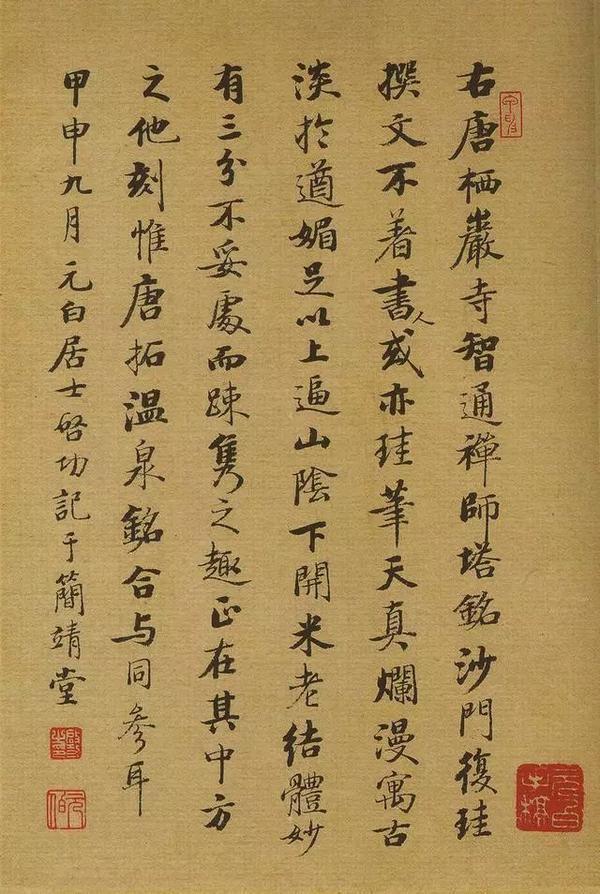 右唐栖巖寺智通禪師塔銘沙門復珪
撰文不着書人或亦珪筆天真爛漫寓古
淡於遒媚足以上逼山陰下開米老結體妙
有三分不妥處而踈雋之趣正在其中方
之他刻惟唐拓温泉銘合与同參耳
甲申九月元白居士啓功記于簡靖堂
元白